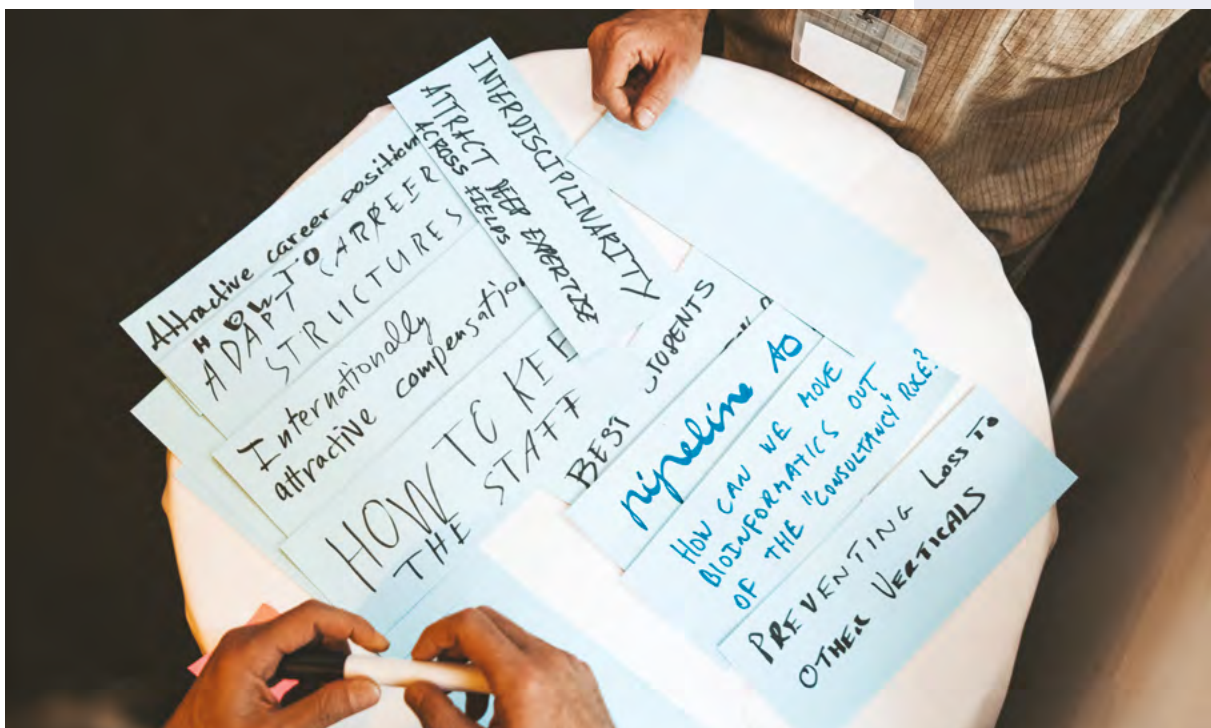 Attractive career position
HOW TO
ADAPT CARREER
STRUCTURES
Internationally
attractive compensation
HOW TO KEE
THE STAFF
INTERDISCIPLINARITY
ATTRACT DEEP EXPERTISE
ACROSS FIELDS
BEST STUDENTS
pipeline AO
HOW CAN WE MOVE
BIOINFORMATICS OUT
OF THE "CONSULTANCY" ROLE?
PREVENTING LOSS TO
OTHER VERTICALS